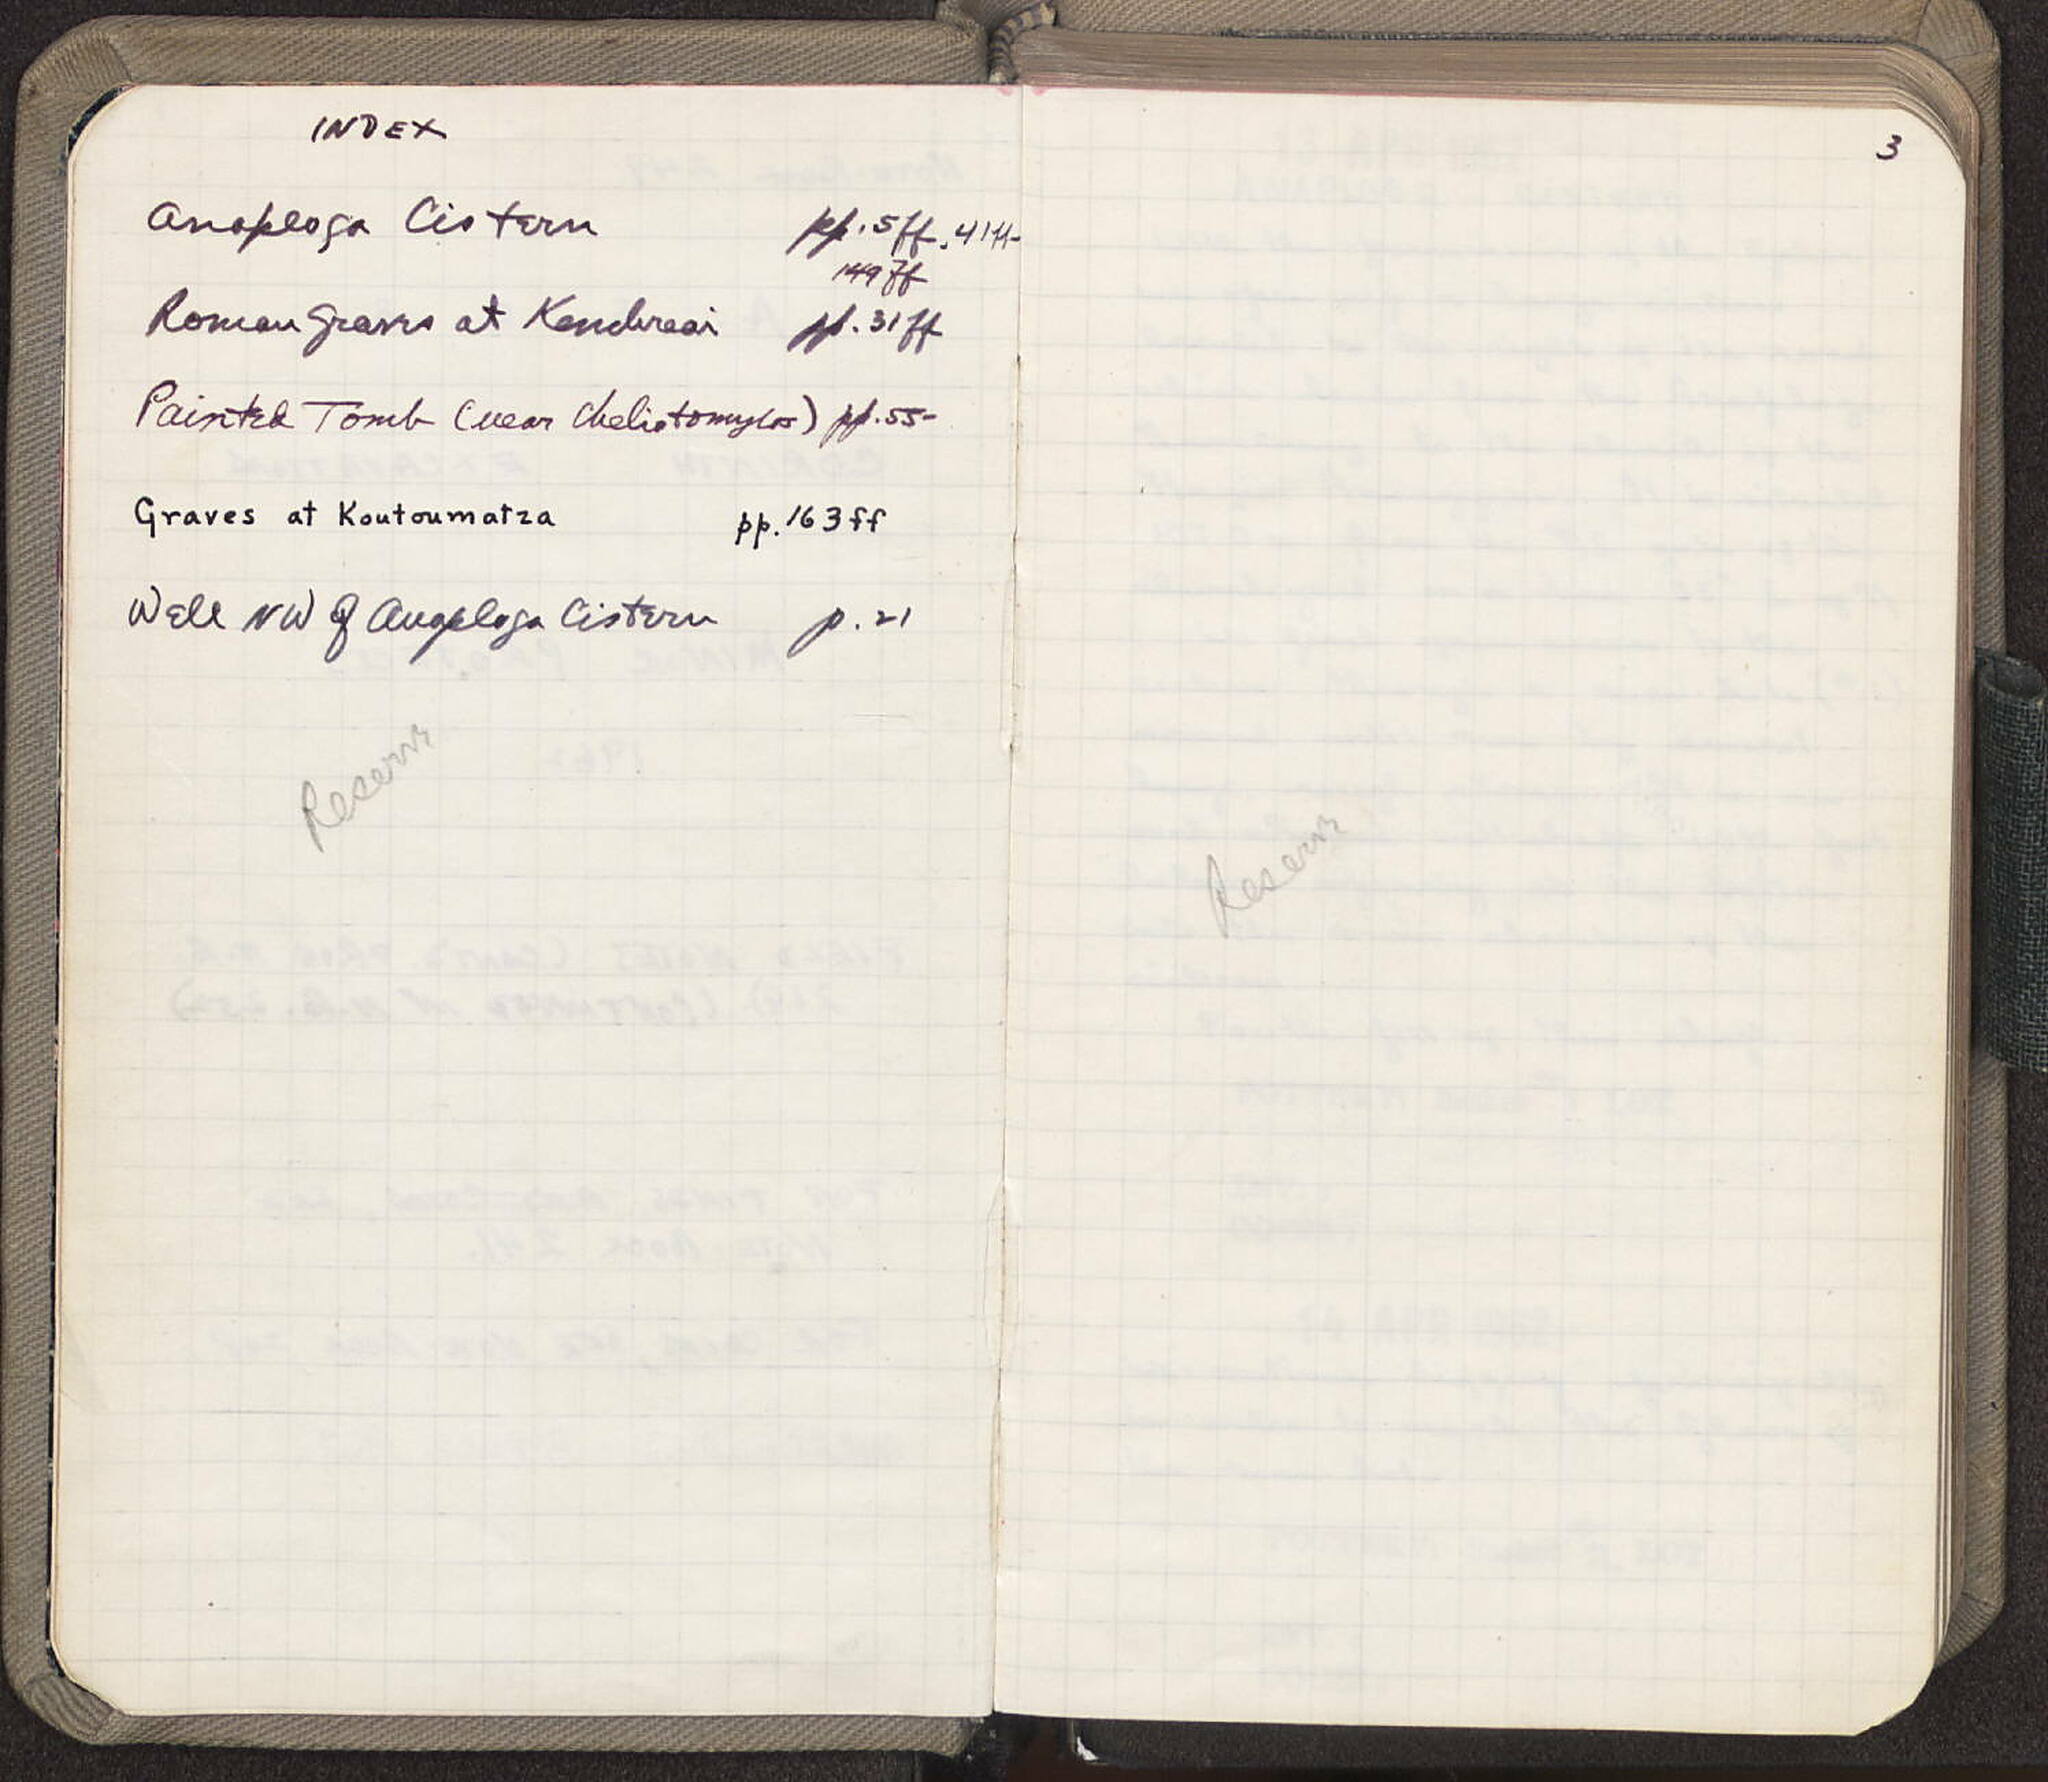 INDEX
Anaploga Cistern pp. 5ff, 41ff
149ff
Roman Graves at Kenchreai pp. 31ff
Painted Tomb (near Cheliotomylos) pp. 55-
Graves at Koutoumatza pp. 163ff
Well NW of Anaploga Cistern p. 21
Reserve
3
Reserve